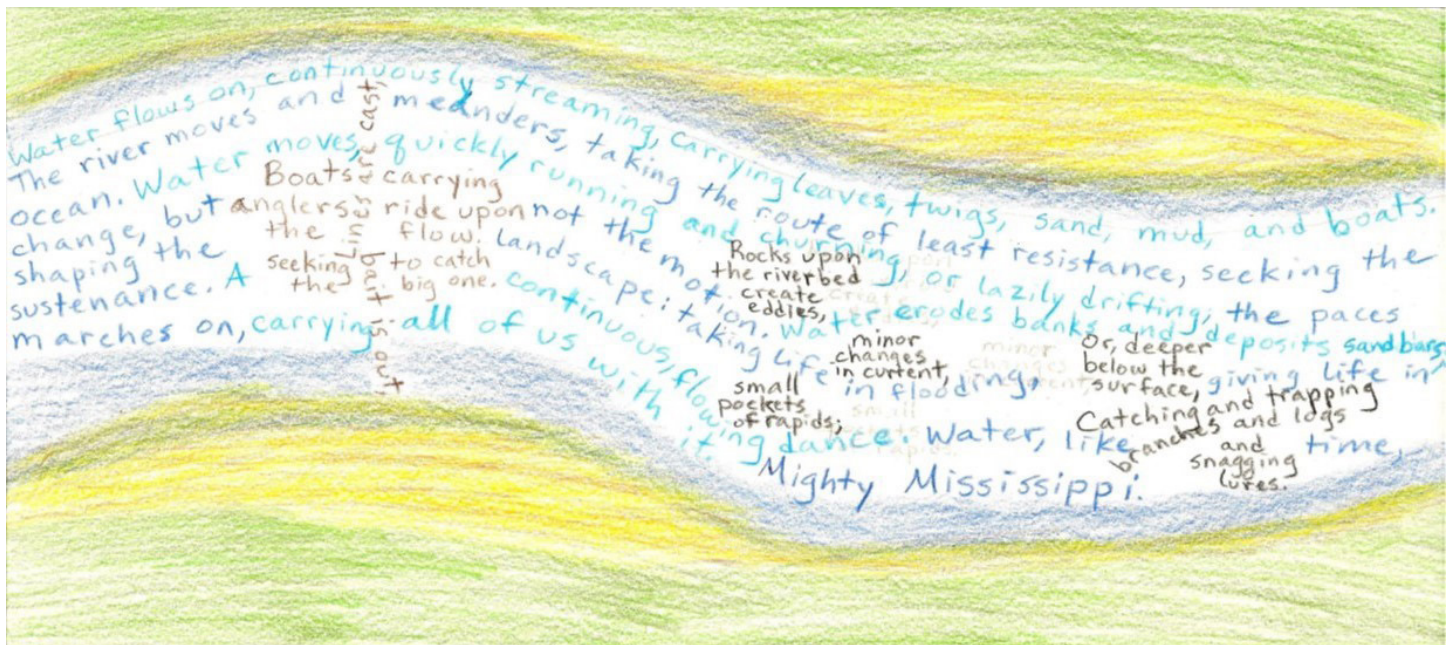 Water flows on, continuously streaming, carrying leaves, twigs, sand, mud, and boats.
The river moves and meanders, taking the route of least resistance, seeking the
ocean. Water moves, quickly running and churning, or lazily drifting, the paces
change, but not the motion. Water erodes banks and deposits sandbars,
shaping the landscape: taking life in flooding, giving life in
sustenance. A continuous, flowing dance. Water, like time,
marches on, carrying all of us with it. Mighty Mississippi.
Boats carrying
anglers ride upon
the flow.
seeking to catch
the big one.
are cast,
bait is out
Rocks upon
the riverbed
create
eddies,
minor
changes
in current,
small
pockets
of rapids;
Or, deeper
below the
surface,
Catching and trapping
branches and logs
and
snagging
lures.